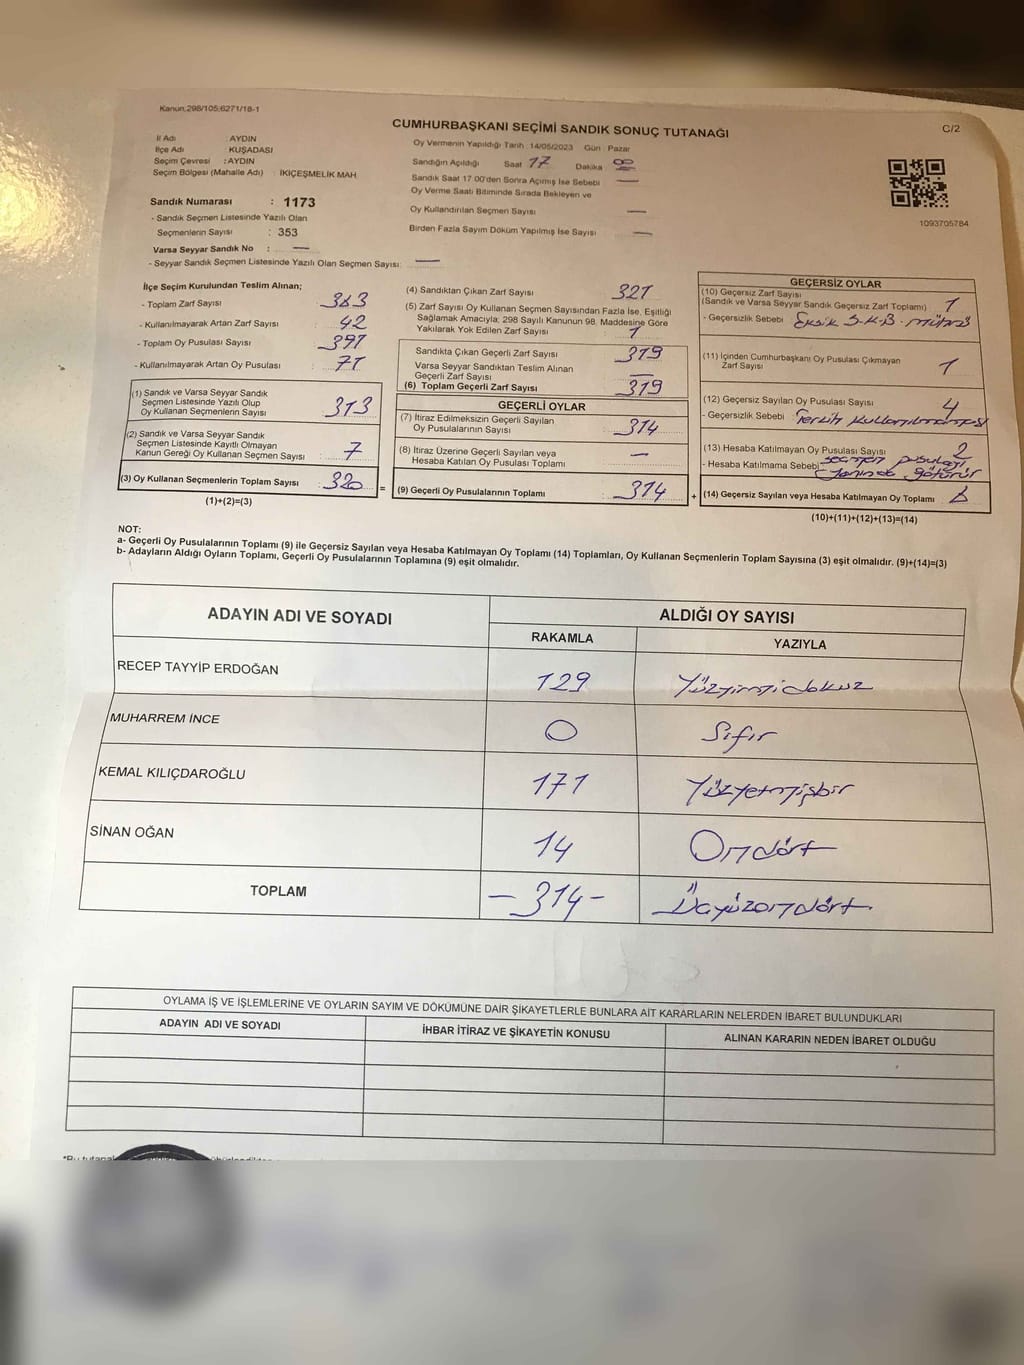 Kanun;298/105;6271/18-1
CUMHURBAŞKANI SEÇİMİ SANDIK SONUÇ TUTANAĞI
C/2
İl Adı : AYDIN
İlçe Adı : KUŞADASI
Seçim Çevresi : AYDIN
Seçim Bölgesi (Mahalle Adı) : İKİÇEŞMELİK MAH.
Sandık Numarası : 1173
- Sandık Seçmen Listesinde Yazılı Olan
Seçmenlerin Sayısı : 353
Varsa Seyyar Sandık No : —
- Seyyar Sandık Seçmen Listesinde Yazılı Olan Seçmen Sayısı: —
Oy Vermenin Yapıldığı Tarih :14/05/2023 Gün : Pazar
Sandığın Açıldığı Saat 17 Dakika 00
Sandık Saat 17:00'den Sonra Açımış İse Sebebi —
Oy Verme Saati Bitiminde Sırada Bekleyen ve
Oy Kullandırılan Seçmen Sayısı —
Birden Fazla Sayım Döküm Yapılmış İse Sayısı —
1093705784
İlçe Seçim Kurulundan Teslim Alınan;
- Toplam Zarf Sayısı : 363
- Kullanılmayarak Artan Zarf Sayısı : 42
- Toplam Oy Pusulası Sayısı : 391
- Kullanılmayarak Artan Oy Pusulası : 71
(1) Sandık ve Varsa Seyyar Sandık
Seçmen Listesinde Yazılı Olup
Oy Kullanan Seçmenlerin Sayısı : 313
(2) Sandık ve Varsa Seyyar Sandık
Seçmen Listesinde Kayıtlı Olmayan
Kanun Gereği Oy Kullanan Seçmen Sayısı : 7
(3) Oy Kullanan Seçmenlerin Toplam Sayısı : 320
(1)+(2)=(3)
(4) Sandıktan Çıkan Zarf Sayısı : 321
(5) Zarf Sayısı Oy Kullanan Seçmen Sayısından Fazla İse, Eşitliği
Sağlamak Amacıyla; 298 Sayılı Kanunun 98. Maddesine Göre
Yakılarak Yok Edilen Zarf Sayısı : 1
Sandıkta Çıkan Geçerli Zarf Sayısı : 319
Varsa Seyyar Sandıktan Teslim Alınan
Geçerli Zarf Sayısı : —
(6) Toplam Geçerli Zarf Sayısı : 319
GEÇERLİ OYLAR
(7) İtiraz Edilmeksizin Geçerli Sayılan
Oy Pusulalarının Sayısı : 314
(8) İtiraz Üzerine Geçerli Sayılan veya
Hesaba Katılan Oy Pusulası Toplamı : —
= (9) Geçerli Oy Pusulalarının Toplamı : 314 +
GEÇERSİZ OYLAR
(10) Geçersiz Zarf Sayısı
(Sandık ve Varsa Seyyar Sandık Geçersiz Zarf Toplamı) : 1
- Geçersizlik Sebebi : Eksik S.K.B. mührü
(11) İçinden Cumhurbaşkanı Oy Pusulası Çıkmayan
Zarf Sayısı : 1
(12) Geçersiz Sayılan Oy Pusulası Sayısı : 4
- Geçersizlik Sebebi : Tercih kullanılmaması
(13) Hesaba Katılmayan Oy Pusulası Sayısı : 2
- Hesaba Katılmama Sebebi : seçmen pusulayı
yanında götürür
(14) Geçersiz Sayılan veya Hesaba Katılmayan Oy Toplamı : 6
(10)+(11)+(12)+(13)=(14)
NOT:
a- Geçerli Oy Pusulalarının Toplamı (9) ile Geçersiz Sayılan veya Hesaba Katılmayan Oy Toplamı (14) Toplamları, Oy Kullanan Seçmenlerin Toplam Sayısına (3) eşit olmalıdır. (9)+(14)=(3)
b- Adayların Aldığı Oyların Toplamı, Geçerli Oy Pusulalarının Toplamına (9) eşit olmalıdır.
ADAYIN ADI VE SOYADI ALDIĞI OY SAYISI
RAKAMLA YAZIYLA
RECEP TAYYİP ERDOĞAN 129 Yüzyirmidokuz
MUHARREM İNCE 0 Sıfır
KEMAL KILIÇDAROĞLU 171 Yüzyetmişbir
SİNAN OĞAN 14 Ondört
TOPLAM -314- Üçyüzondört
OYLAMA İŞ VE İŞLEMLERİNE VE OYLARIN SAYIM VE DÖKÜMÜNE DAİR ŞİKAYETLERLE BUNLARA AİT KARARLARIN NELERDEN İBARET BULUNDUKLARI
ADAYIN ADI VE SOYADI İHBAR İTİRAZ VE ŞİKAYETİN KONUSU ALINAN KARARIN NEDEN İBARET OLDUĞU